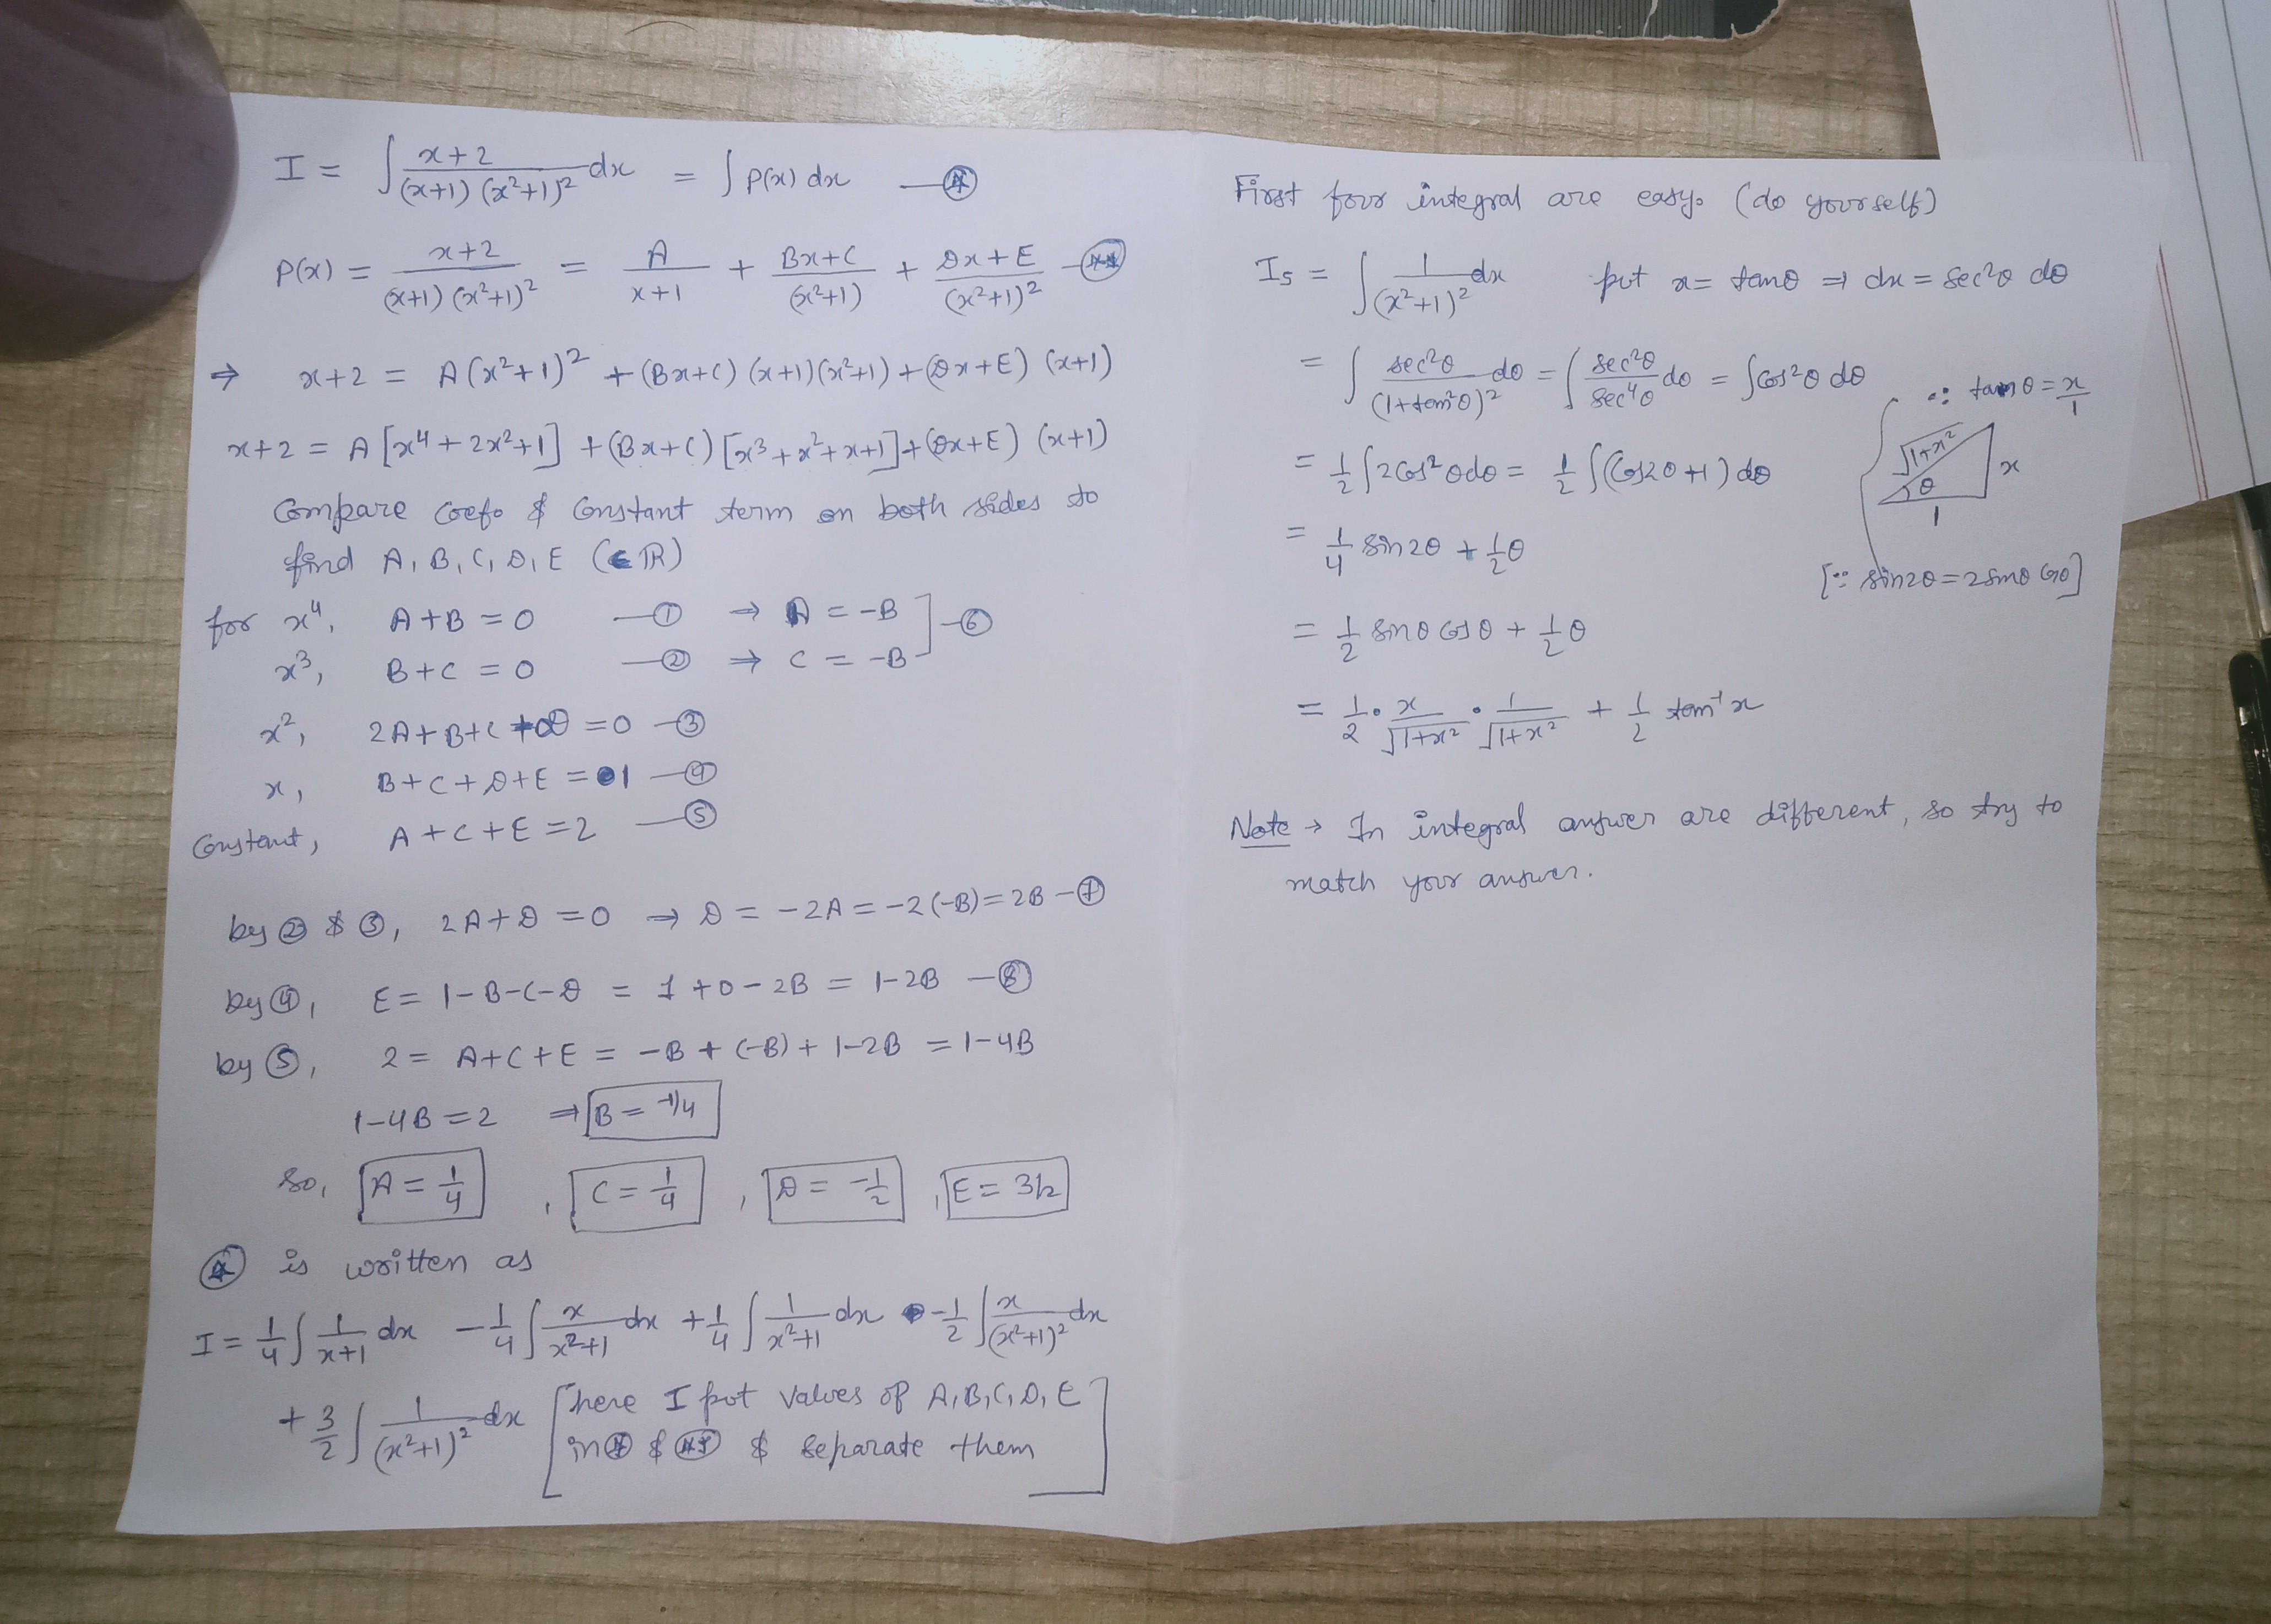 I = ∫ (x+2)/((x+1)(x²+1)²) dx = ∫ P(x) dx —(*)
P(x) = (x+2)/((x+1)(x²+1)²) = A/(x+1) + (Bx+C)/(x²+1) + (Dx+E)/(x²+1)² —(**)
⇒ x+2 = A(x²+1)² + (Bx+C)(x+1)(x²+1) + (Dx+E)(x+1)
x+2 = A[x⁴+2x²+1] + (Bx+C)[x³+x²+x+1] + (Dx+E)(x+1)
Compare coef. & Constant term on both sides to
find A, B, C, D, E (∈ ℝ)
for x⁴, A+B = 0 —① ⇒ A = -B ] —⑥
x³, B+C = 0 —② ⇒ C = -B
x², 2A+B+C+D = 0 —③
x, B+C+D+E = 1 —④
Constant, A+C+E = 2 —⑤
by ② & ③, 2A+D = 0 ⇒ D = -2A = -2(-B) = 2B —⑦
by ④, E = 1-B-C-D = 1+0-2B = 1-2B —⑧
by ⑤, 2 = A+C+E = -B+(-B)+1-2B = 1-4B
1-4B = 2 ⇒ B = -1/4
So, A = 1/4 , C = 1/4 , D = -1/2 , E = 3/2
(*) is written as
I = 1/4 ∫ 1/(x+1) dx - 1/4 ∫ x/(x²+1) dx + 1/4 ∫ 1/(x²+1) dx - 1/2 ∫ x/(x²+1)² dx
+ 3/2 ∫ 1/(x²+1)² dx [here I put values of A, B, C, D, E
in (*) & (**) & separate them]
First four integral are easy. (do yourself)
I₅ = ∫ 1/(x²+1)² dx put x = tanθ ⇒ dx = sec²θ dθ
= ∫ sec²θ/(1+tan²θ)² dθ = ∫ sec²θ/sec⁴θ dθ = ∫cos²θ dθ
∵ tanθ = x/1
= 1/2 ∫2cos²θdθ = 1/2 ∫(cos2θ+1)dθ
√1+x²
x
θ
1
= 1/4 sin2θ + 1/2 θ
[∵ sin2θ = 2sinθ cosθ]
= 1/2 sinθ cosθ + 1/2 θ
= 1/2 · x/√1+x² · 1/√1+x² + 1/2 tan⁻¹x
Note → In integral answer are different, so try to
match your answer.